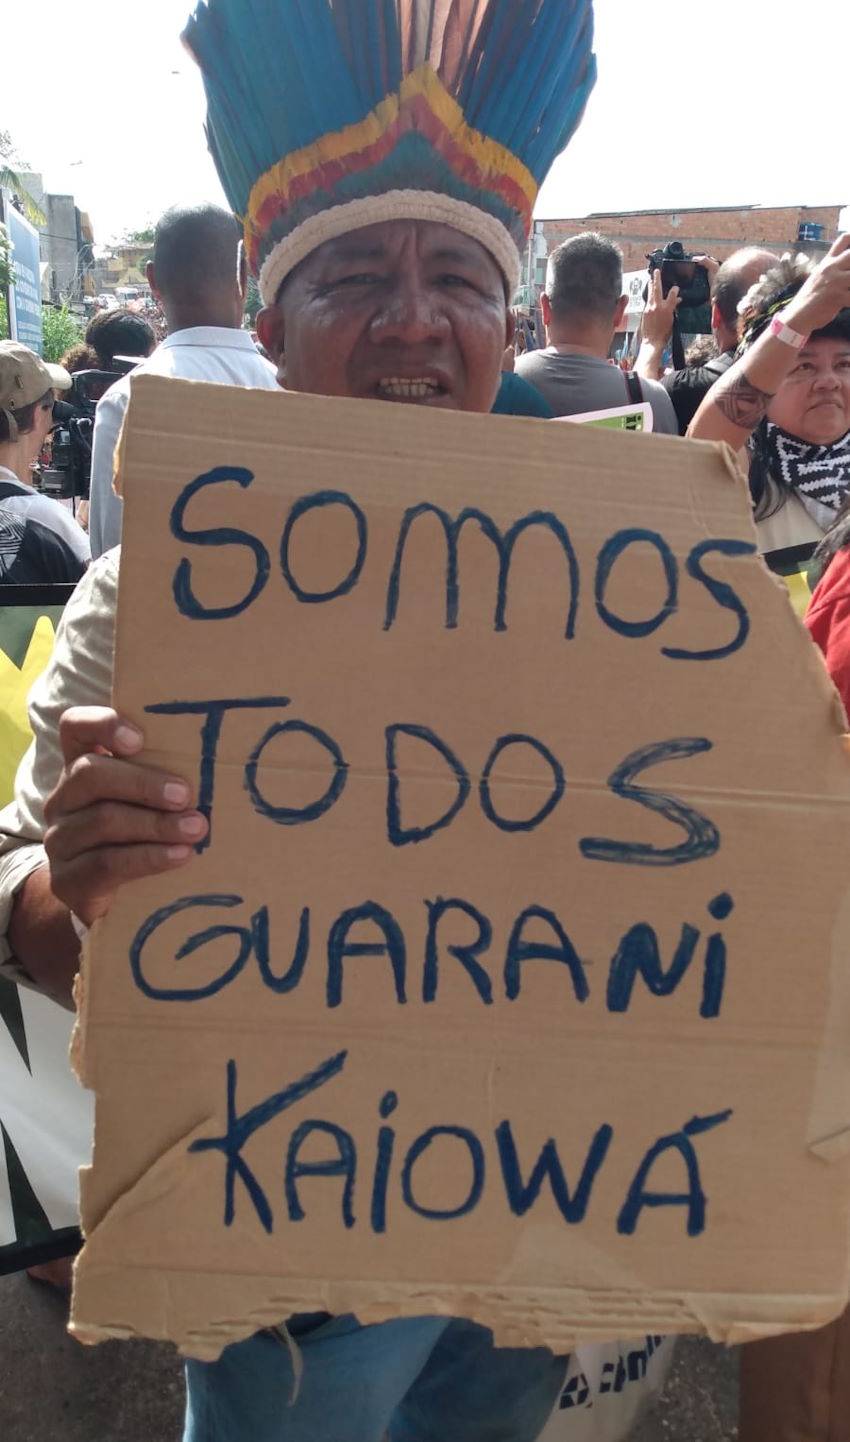 SOMOS
TODOS
GUARANI
KAIOWÁ